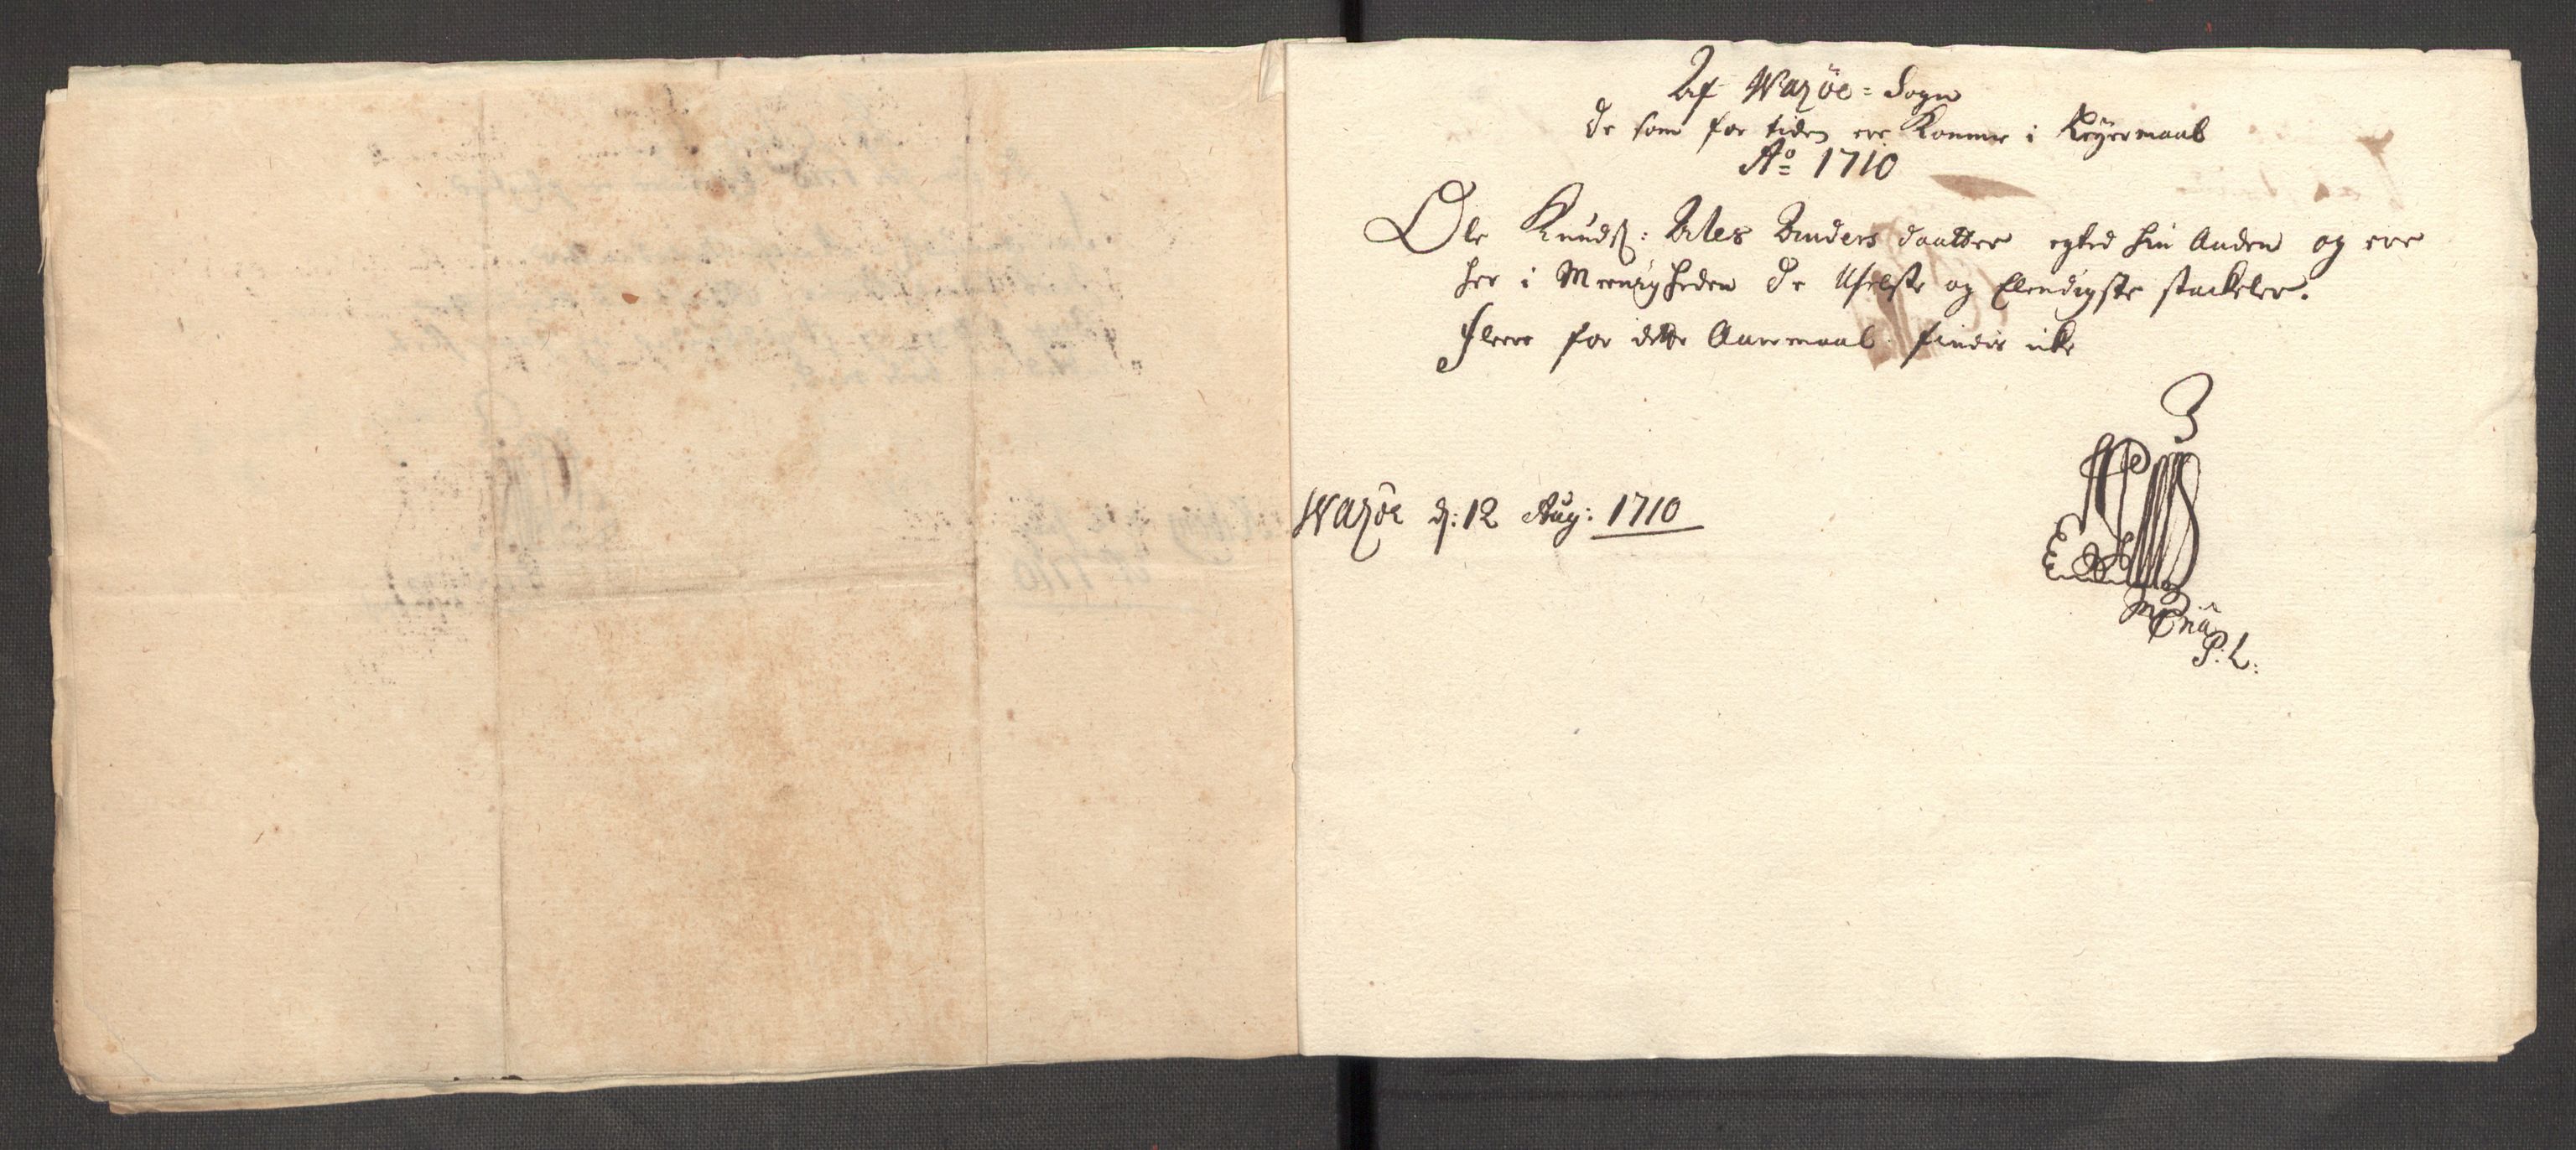 Af Wazöe = Sogn
de som for tiden ere komne i Leyermaal
Ao 1710
Ole Knuds: Ales Anders daatter egted hin Anden og ere
her i Meenigheden de Uselste og Elendigste stackeler.
Fleere for dette Aaremaal findis icke
Wazöe d: 12 Aug: 1710
P: L: